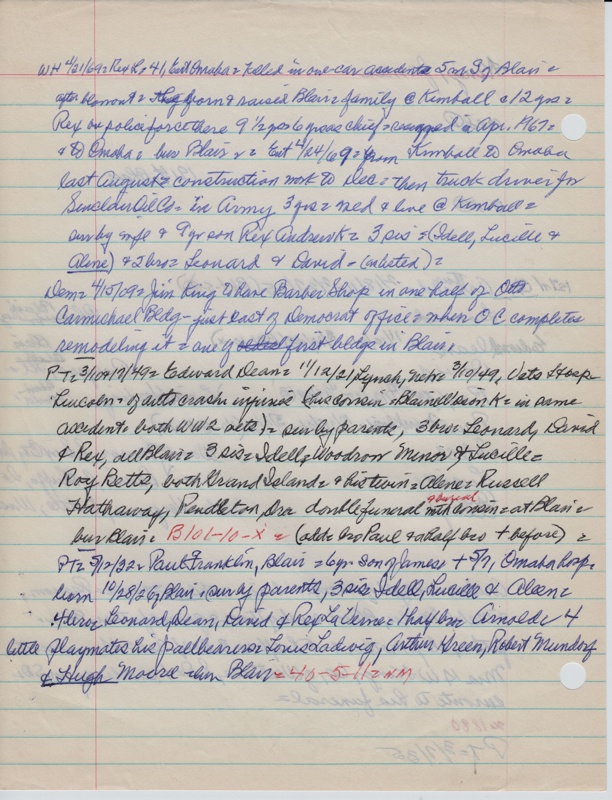 WH 4/21/69 = Rex L, 41, East Omaha = killed in one-car accident 5 mi S of Blair =
after = born & raised Blair = family @ Kimball c 12 yrs =
Rex on police force there 9 1/2 yrs 6 yrs as chief = resigned in Apr. 1967 =
& to Omaha = bur Blair = Ent 4/24/69 = from Kimball to Omaha
last August = construction work to Dec = then truck driver for
Sinclair Oil Co = in Army 3 yrs = med & live @ Kimball =
sur by wife & 9 yr son Rex Andrew K = 3 sis = (Idell, Lucille &
Aline) & 2 bro = Leonard & David = (as listed) =
Dem = 4/15/09 = Jim King to have Barber Shop in one half of Otto
Carmichael Bldg - just east of Democrat office = when O C completes
remodeling it = one of first bldgs in Blair.
P-T = 3/10 + 17/49 = Edward Dean = 11/12/21 Lynch, Neb = 3/10/49, Vets Hosp -
Lincoln = of auto crash injuries (his cousin = Blaine Wilson K = in same
accident = both WW2 vets) = sur by parents, 3 bros = Leonard, David
& Rex, all Blair = 3 sis = Idell = Woodrow Minor & Lucille =
Roy Betts, both Grand Island = & his twin = Alene = Russell
Hathaway, Pendleton, Ore double funeral with cousin = at Blair =
bur Blair = B 101-10-X = (add = bro Paul & a half bro + before) =
PT = 5/12/32 = Paul Franklin, Blair = 6 yr son of James + 5/7, Omaha hosp =
born 10/28/26, Blair = sur by parents, 3 sis = Idell, Lucille & Aleen =
4 bro = Leonard, Dean, David & Rex LaVerne = half bro Arnold = 4
little playmates his pallbearers = Louis Ladwig, Arthur Green, Robert Mundorf
& Hugh Moore = bur Blair = 40-5-11 = NM